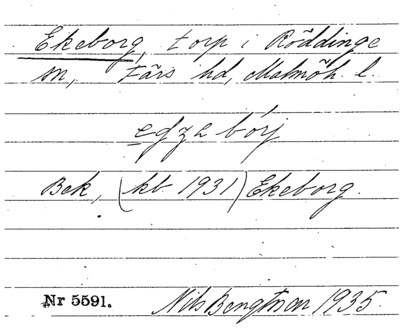 Ekeborg, torp i Röddinge
sn, Färs hd, Malmöh. l.
Bek, (kb 1931) Ekeborg.
Nr 5591. Nils Bengtsson 1935.